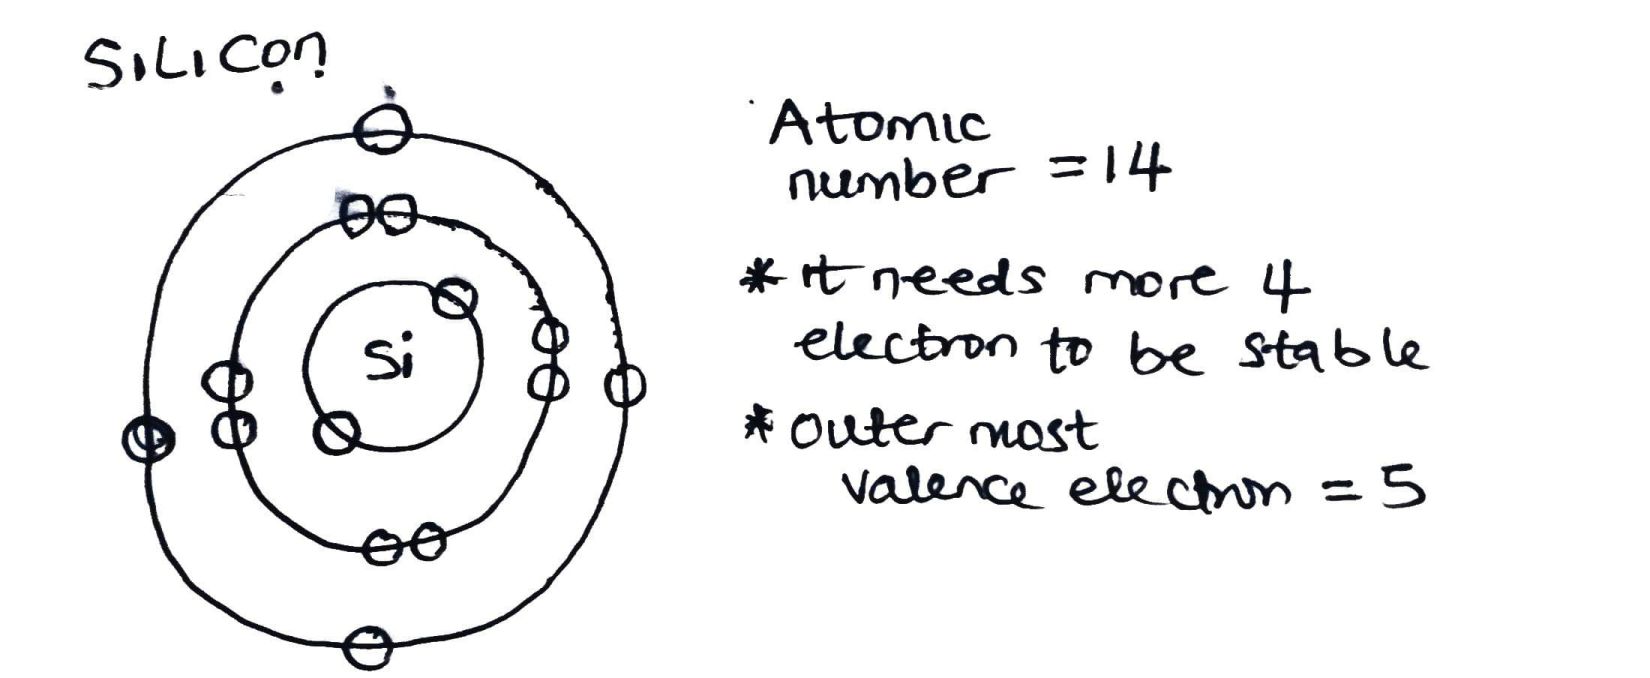 SILICon
Atomic
number = 14
Si
* it needs more 4
electron to be stable
* outer most
valence electron = 5